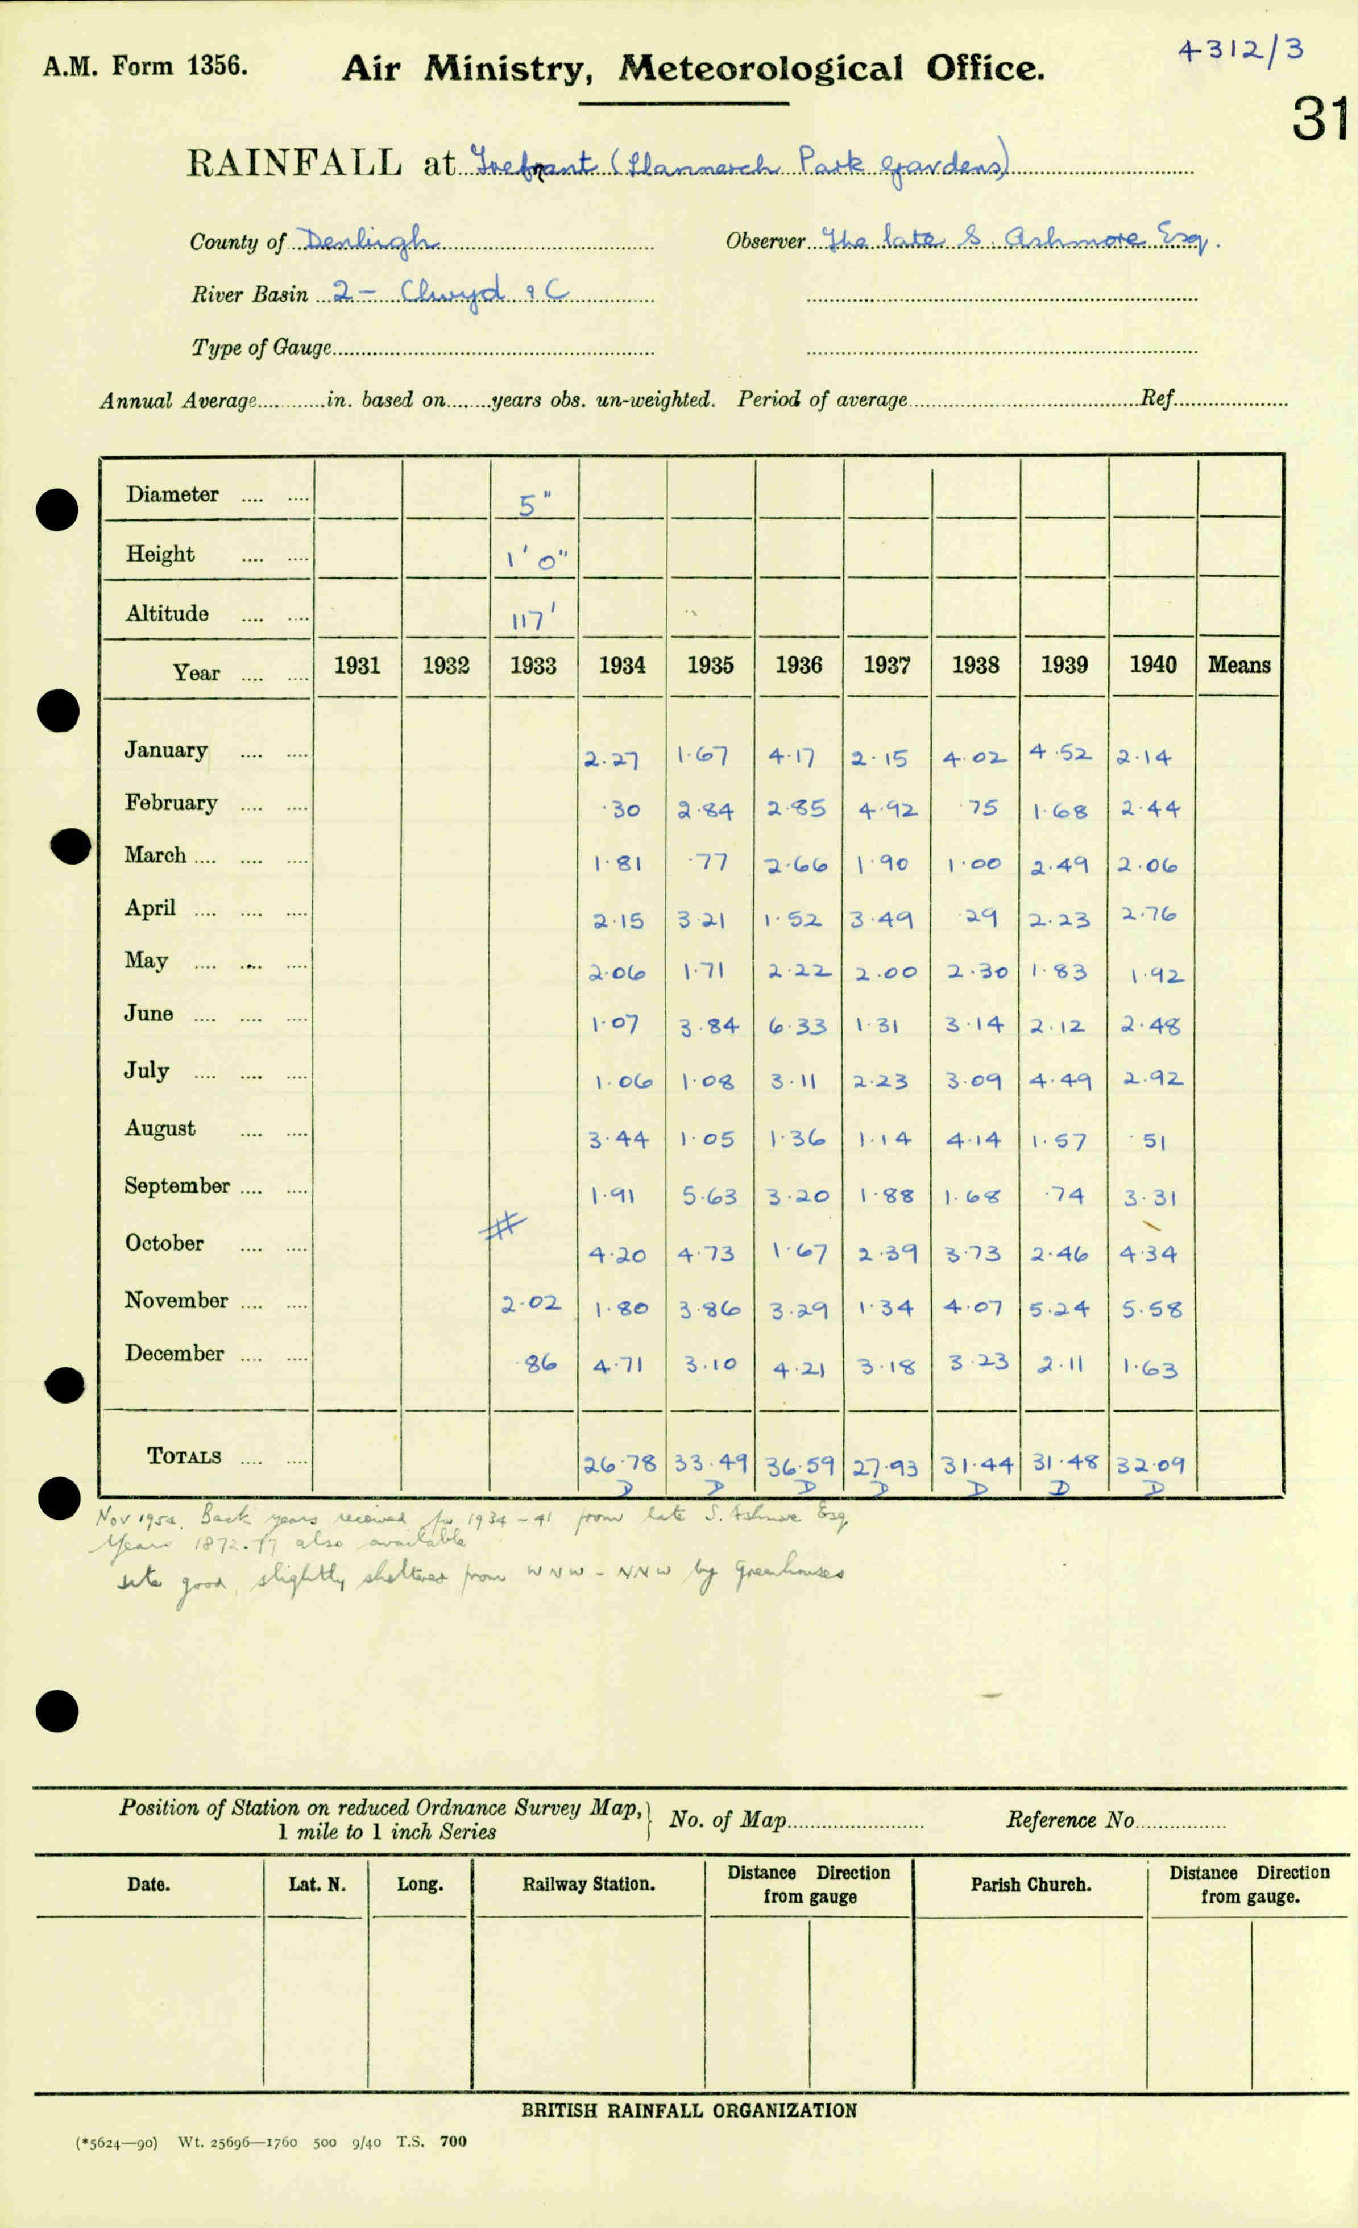 4312/3
A.M. Form 1356. Air Ministry, Meteorological Office.
31
RAINFALL at Trefnant (Llannerch Park Gardens)
County of Denbigh Observer The late S. Ashmore Esq.
River Basin 2 - Clwyd & C
Type of Gauge
Annual Average in. based on years obs. un-weighted. Period of average Ref.
Diameter 5"
Height 1' 0"
Altitude 117'
Year 1931 1932 1933 1934 1935 1936 1937 1938 1939 1940 Means
January 2.27 1.67 4.17 2.15 4.02 4.52 2.14
February .30 2.84 2.85 4.92 .75 1.68 2.44
March 1.81 .77 2.66 1.90 1.00 2.49 2.06
April 2.15 3.21 1.52 3.49 .29 2.23 2.76
May 2.06 1.71 2.22 2.00 2.30 1.83 1.92
June 1.07 3.84 6.33 1.31 3.14 2.12 2.48
July 1.06 1.08 3.11 2.23 3.09 4.49 2.92
August 3.44 1.05 1.36 1.14 4.14 1.57 .51
September 1.91 5.63 3.20 1.88 1.68 .74 3.31
October # 4.20 4.73 1.67 2.39 3.73 2.46 4.34
November 2.02 1.80 3.86 3.29 1.34 4.07 5.24 5.58
December .86 4.71 3.10 4.21 3.18 3.23 2.11 1.63
TOTALS 26.78 33.49 36.59 27.93 31.44 31.48 32.09
D D D D D D D
Nov Back years received for 1934-41 from late S. Ashmore Esq
Years 1872- also available
site good, slightly sheltered from WNW - NNW by greenhouses
Position of Station on reduced Ordnance Survey Map, } No. of Map Reference No.
1 mile to 1 inch Series
Date. Lat. N. Long. Railway Station. Distance Direction from gauge Parish Church. Distance Direction from gauge.
BRITISH RAINFALL ORGANIZATION
(*5624—90) Wt. 25696—1760 500 9/40 T.S. 700